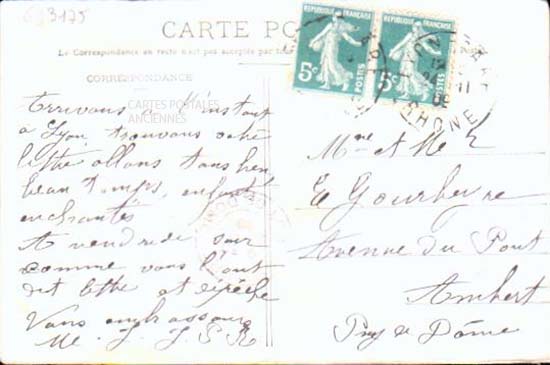 633175
CARTE POSTALE
La Correspondance au recto n'est pas acceptée par tout
CORRESPONDANCE
CARTES POSTALES
ANCIENNES
REPUBLIQUE FRANÇAISE
5c
POSTES
REPUBLIQUE FRANÇAISE
5c
POSTES
LYON
RHONE
Arrivons à l'instant
à Lyon trouvons votre
lettre allons tous bien
beau temps, enfants
enchantés
A vendredi soir
comme vous l'ont
dit lettre et dépêche
Vous embrassons
Mme et Mr
E Gourbeyre
Avenue du Pont
Ambert
Puy de Dôme